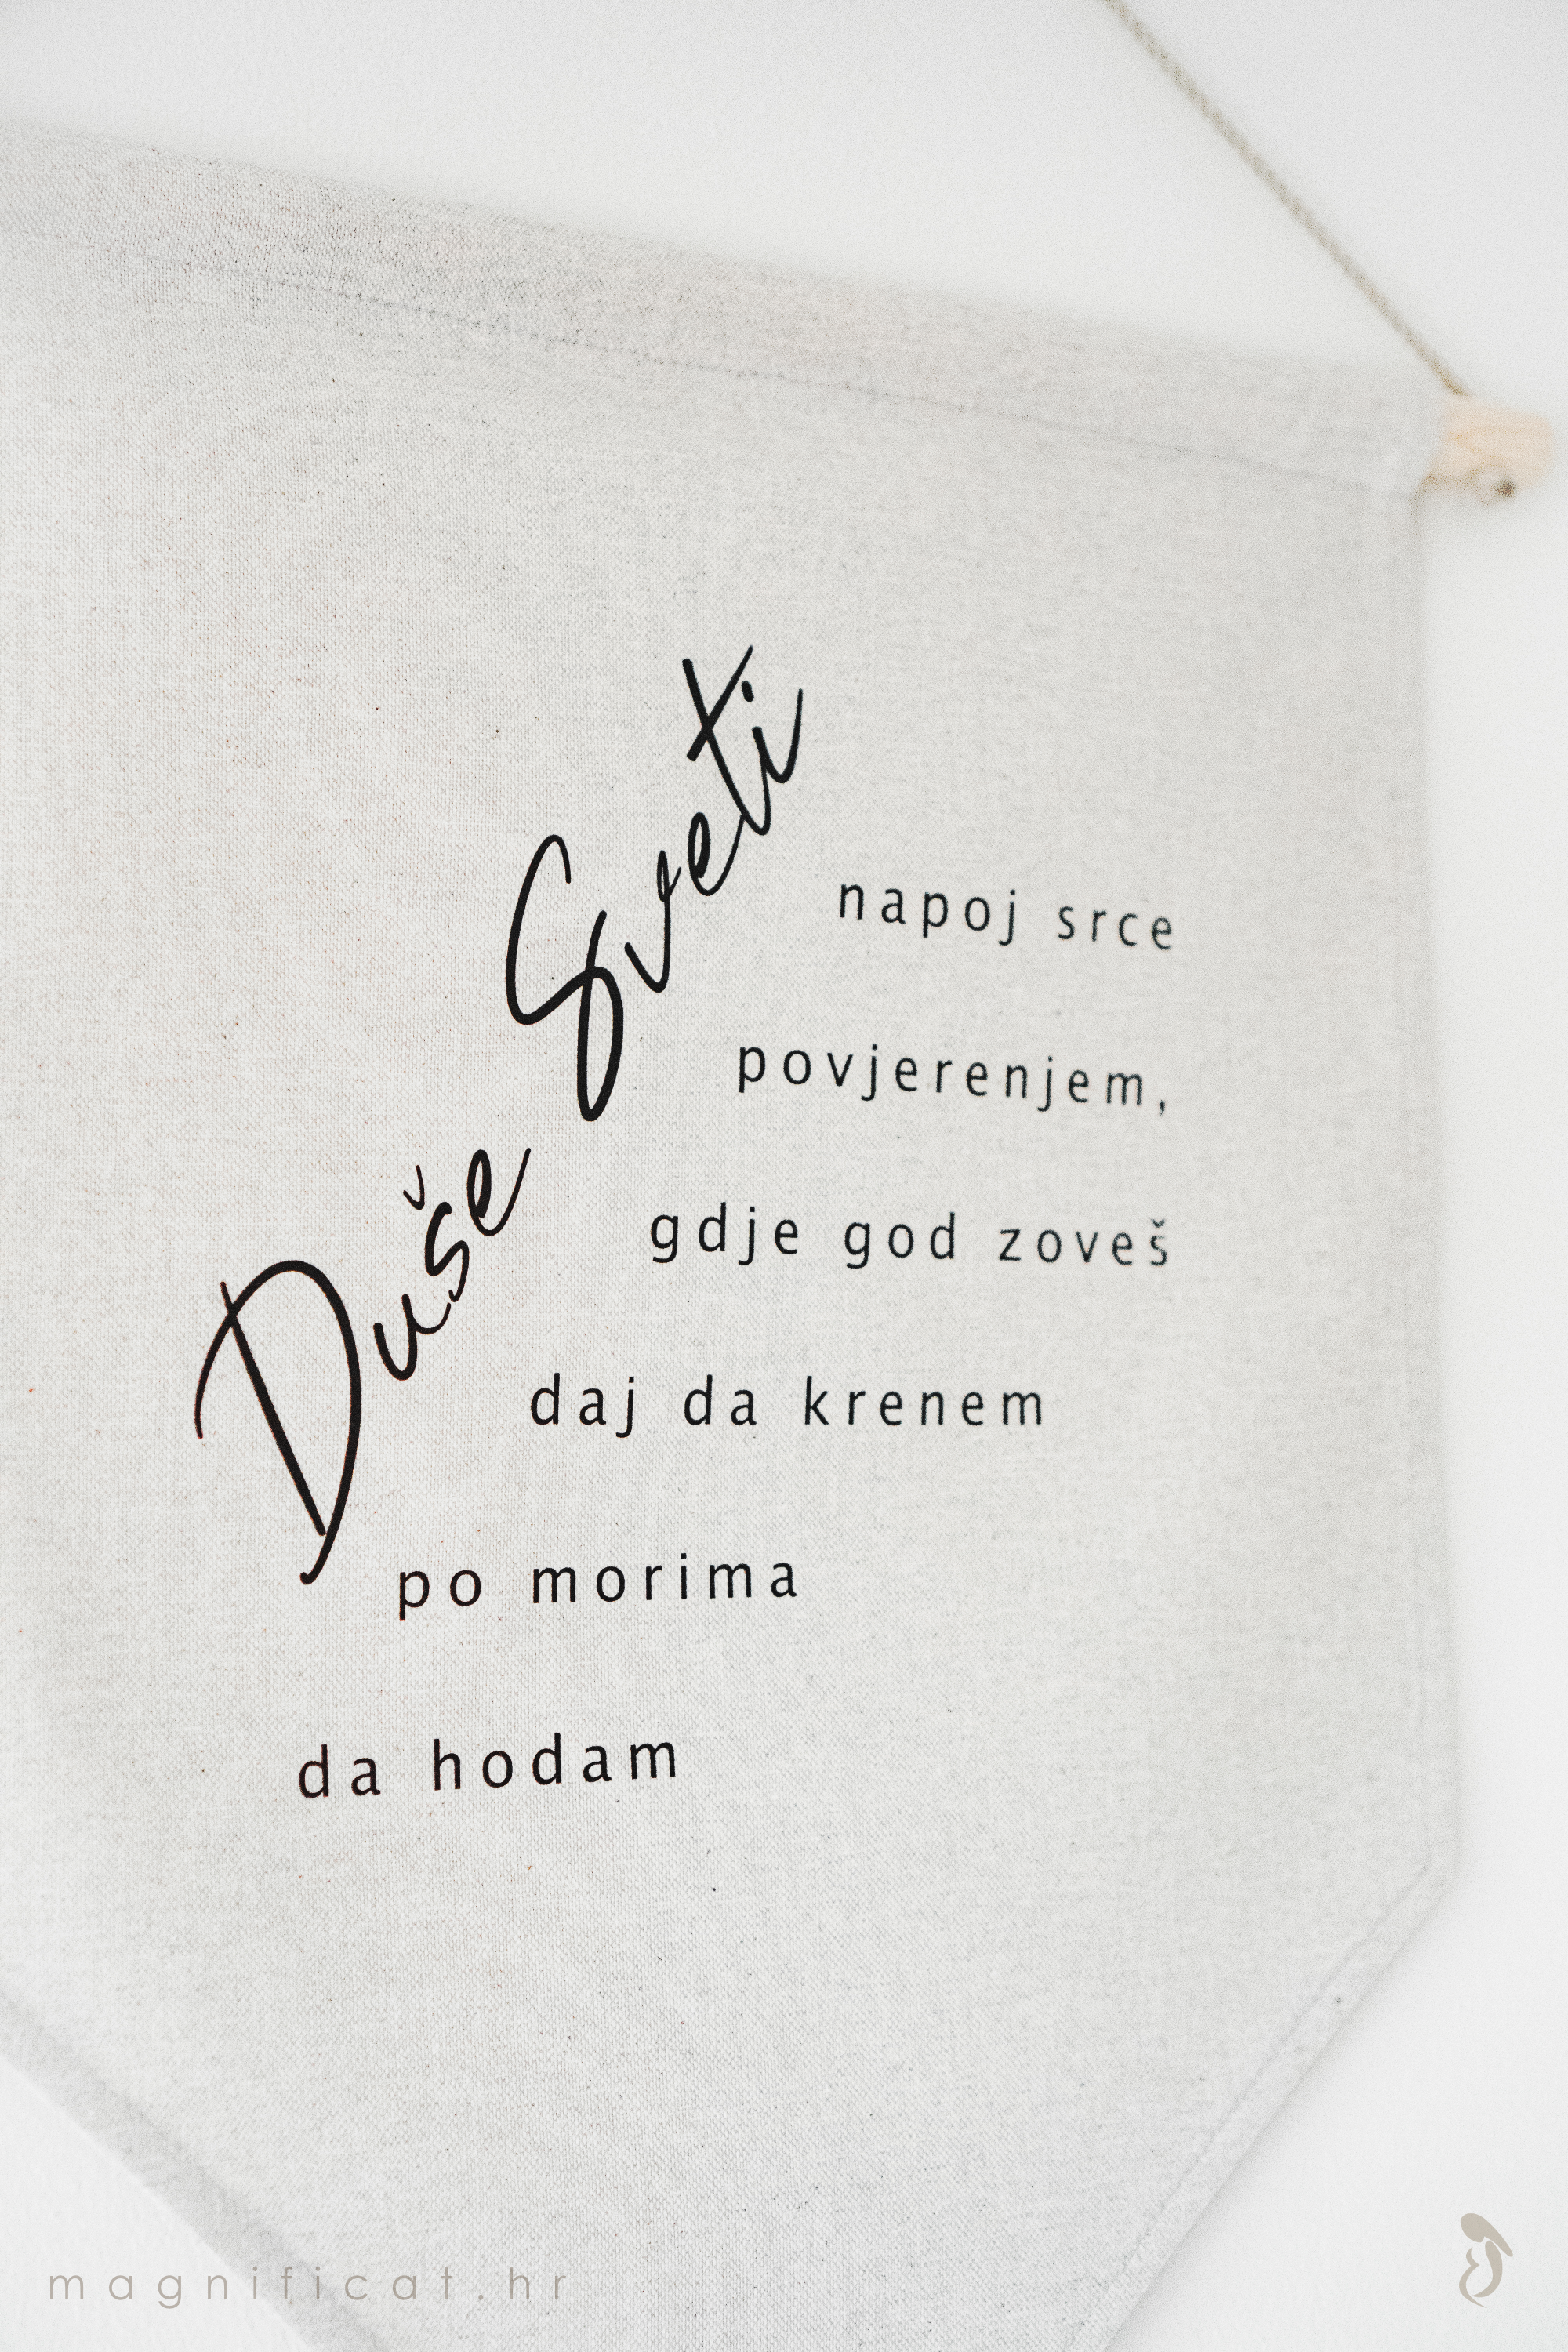 Duše Sveti
napoj srce
povjerenjem,
gdje god zoveš
daj da krenem
po morima
da hodam
magnificat.hr